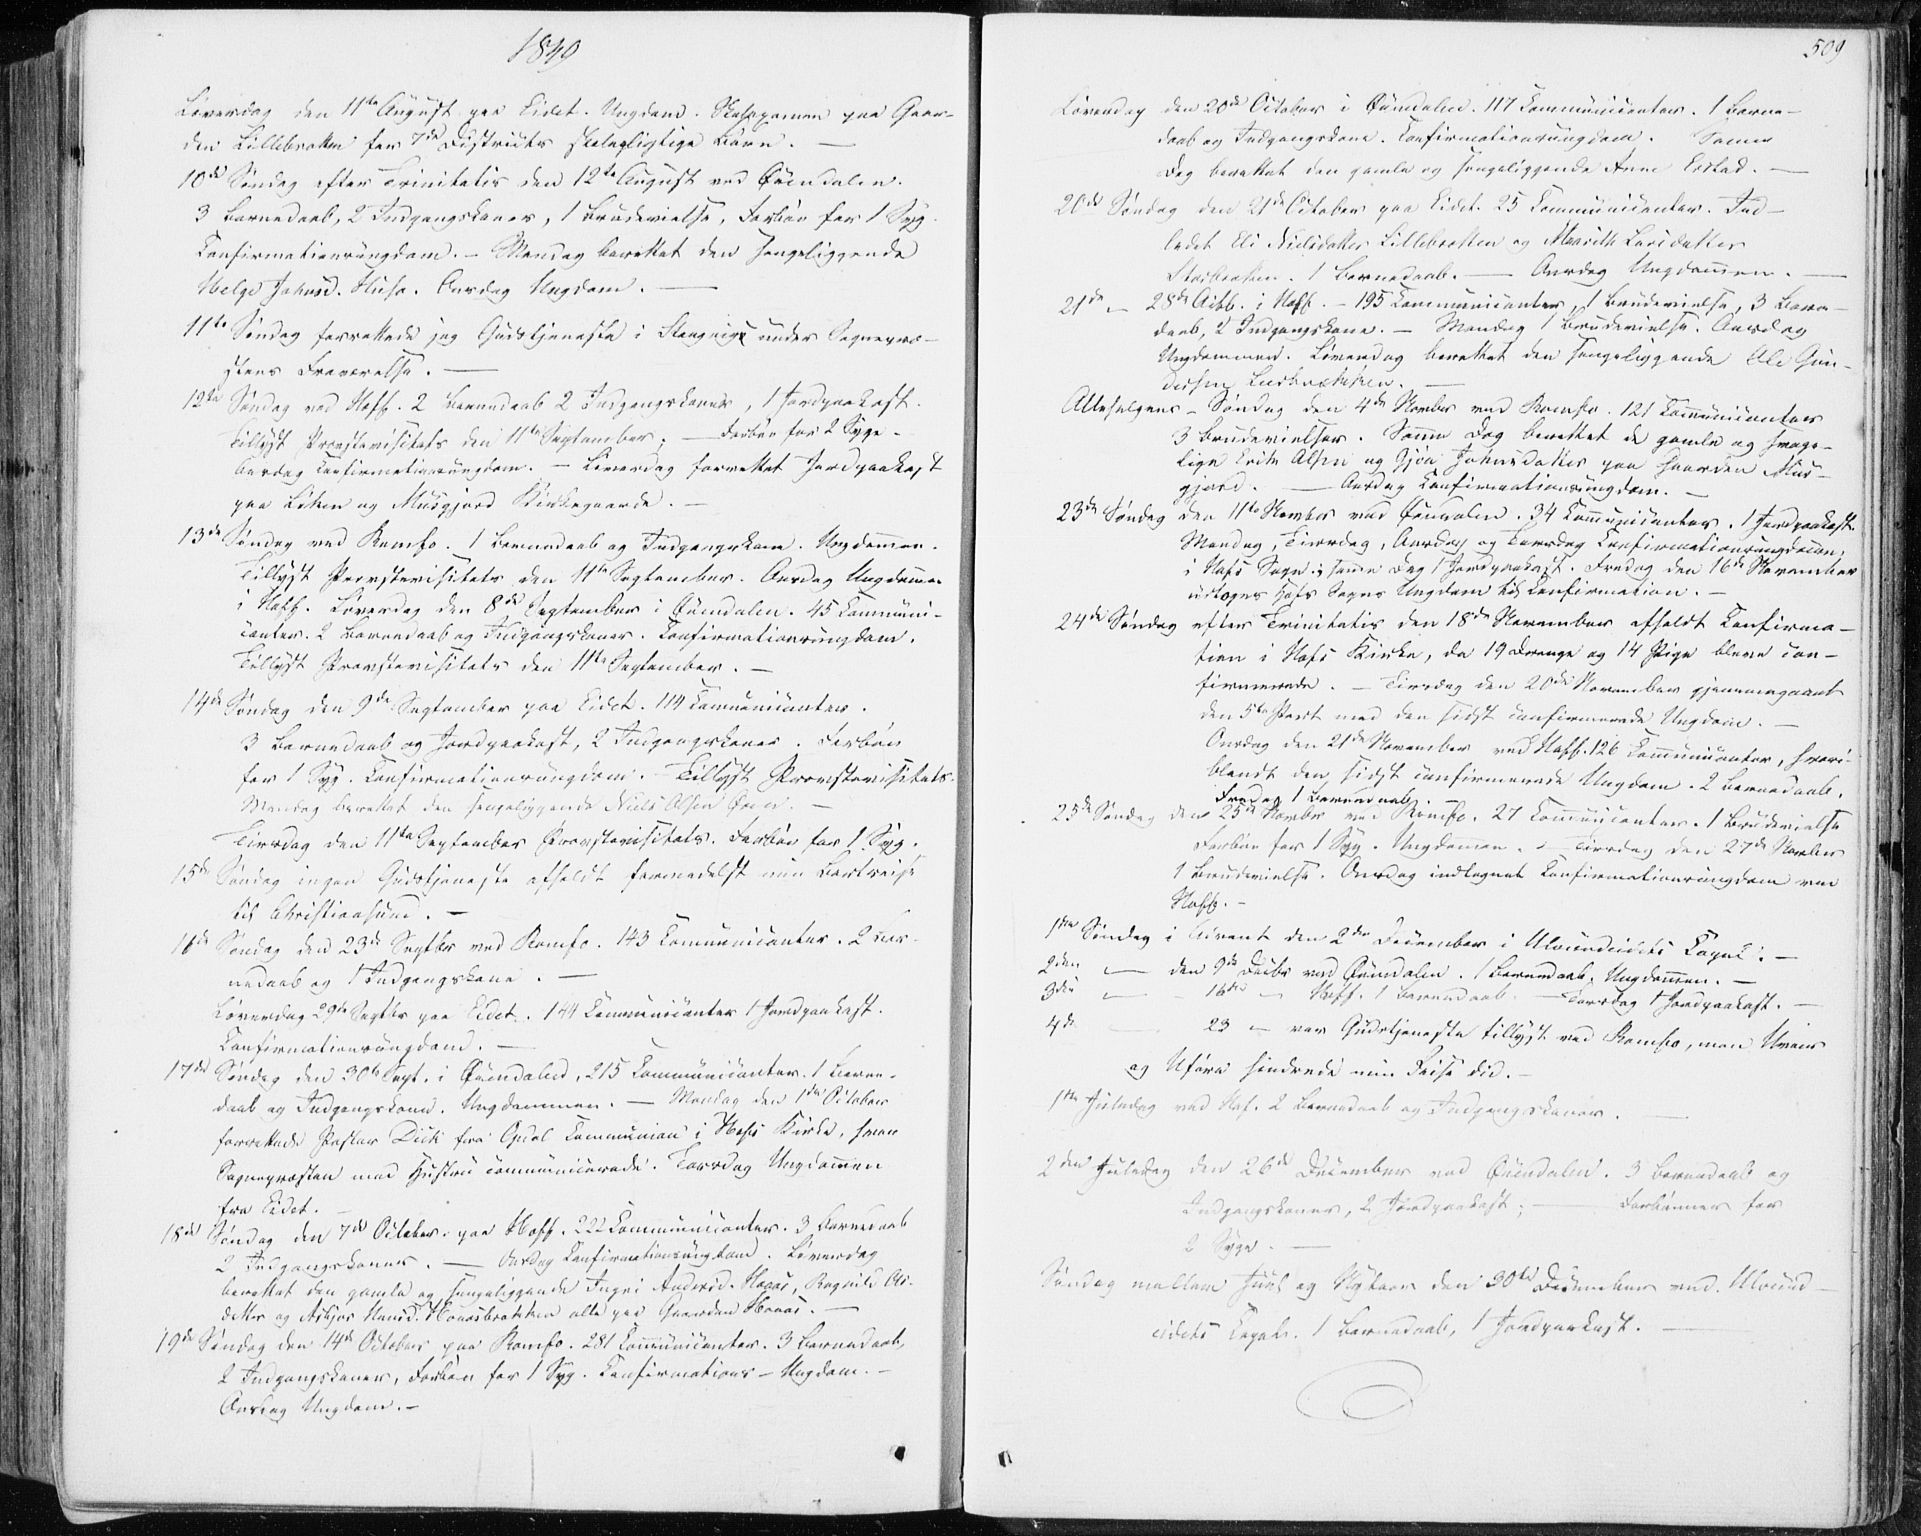 1849
Løverdag den 11te August paa Eidet. Ungdend. Skolexamen paa Gaar-
den Lillebrotten for 7de Districts skolepligtige Børn. —
10de Søndag efter Trinitatis den 12te August ved Øxendalen.
3 Barnedaab, 2 Indgangskoner, 1 Brudevielse, Forbøn for 1 Syg.
Confirmationsungdom. — Mandag berettet den sengeliggende
Helge Johnsd. Huso. Onsdag Ungdom. —
11te Søndag forrettede jeg Gudstjeneste i Stangvig under Sognepræ-
stens Fraværelse. —
12te Søndag ved Hoff. 2 Barnedaab 2 Indgangskoner, 1 Jordpaakast.
Tillyst Provstevisitats den 11te September. — Forbøn for 2 Syge.
Onsdag Confirmationsungdom. — Løverdag forrettet Jordpaakast
paa Liken og Musgjerd Kirkegaarde. —
13de Søndag ved Romfo. 1 Barnedaab og Indgangskone. Ungdommen.
Tillyst Provstevisitats den 11te September. Onsdag Ungdommen
i Hoff. Løverdag den 8de September i Øxendalen. 45 Communi-
canter. 2 Barnedaab og Indgangskoner. Confirmationsungdom.
Tillyst Provstevisitats den 11te September. —
14de Søndag den 9de September paa Eidet. 114 Communicanter.
3 Barnedaab og Jordpaakast, 2 Indgangskoner. Forbøn
for 1 Syg. Confirmationsungdom. — Tillyst Provstevisitats.
Mandag berettet den sengeliggende Niels Olsen —
Tirsdag den 11te September Provstevisitats. Forbøn for 1 Syg.
15de Søndag ingen Gudstjeneste afholdt formedelst min Bortreise
til Christiansund. —
16de Søndag den 23de Septbr ved Romfo. 143 Communicanter. 2 Bar-
nedaab og 1 Indgangskone. —
Løverdag 29de Septbr paa Eidet. 144 Communicanter 1 Jordpaakast.
Confirmationsungdom. —
17de Søndag den 30te Sept. i Øxendalen, 215 Communicanter. 1 Barne-
daab og Indgangskone. Ungdommen. — Mandag den 1ste October
forrettede Pastor Dick fra Opdal Communion i Hofs Kirke, hvor
Sognepræsten med Hustru communicerede. Torsdag Ungdommen
fra Eidet.
18de Søndag den 7de October paa Hoff. 222 Communicanter. 3 Barnedaab
2 Indgangskoner. — Onsdag Confirmationsungdom. Løverdag
berettet den gamle og sengeliggende Ingri Andersd. Hovas, Ragnild Ols-
datter og Asbjør Hansd. Hovasbrækken alle paa Gaarden Hovas. —
19de Søndag den 14de October paa Romfo. 281 Communicanter. 3 Barnedaab,
2 Indgangskoner, Forbøn for 1 Syg. Confirmations-Ungdom. —
Onsdag Ungdom. —
509
Løverdag den 20de October i Øxendalen. 117 Communicanter. 1 Barne-
daab og Indgangskone. Confirmationsungdom. Samme
Dag berettet den gamle og sengeliggende Anne Erstad. —
20de Søndag den 21de October paa Eidet. 25 Communicanter. Ind-
ledet Eli Nielsdatter Lillebrotten og Marith Larsdatter
1 Barnedaab. — Onsdag Ungdommen. —
21de — 28de Octbr. i Hoff. — 195 Communicanter, 1 Brudevielse, 3 Barne-
daab, 2 Indgangskone. — Mandag 1 Brudevielse. Onsdag
Ungdommen. Løverdag berettet den sengeliggende Ole Gun-
dersen —
Allehelgens-Søndag den 4de Novbr ved Romfo. 121 Communicanter
3 Brudevielser. Samme Dag berettet de gamle og svage-
lige Erik Olsen og Gjøa Johnsdatter paa Gaarden Mus-
gjerd. — Onsdag Confirmationsungdom. —
23de Søndag den 11te Novbr ved Øxendalen. 34 Communicanter. 1 Jordpaakast.
Mandag, Tirsdag, Onsdag og Torsdag Confirmationsungdommen,
i Hofs Sogn; samme Dag 1 Jordpaakast. Fredag den 16de November
udtoges Hofs Sogns Ungdom til Confirmation. —
24de Søndag efter Trinitatis den 18de November afholdt Confirma-
tion i Hofs Kirke, da 19 Drenge og 14 Pige bleve con-
firmerede. — Tirsdag den 20de November gjennemgaaet
den 5te Part med den sidst confirmerede Ungdom. —
Onsdag den 21de November ved Hoff. 126 Communicanter, hvori-
blandt den sidst confirmerede Ungdom. 2 Barnedaab.
Fredag 1 Barnedaab. —
25de Søndag den 25de Novbr ved Romfo. 27 Communicanter. 1 Brudevielse
Forbøn for 1 Syg. Ungdommen. — Tirsdag den 27de Novbr
1 Brudevielse. Onsdag indtegnet Confirmationsungdom ved
Hoff. —
1ste Søndag i Advent den 2den December i Ulvundeidets Capel. —
2den — den 9de Decbr ved Øxendalen. 1 Barnedaab, Ungdommen. —
3die — - 16de — Hoff. 1 Barnedaab. — Torsdag 1 Jordpaakast. —
4de — 23 — var Gudstjeneste tillyst ved Romfo, men Uveir
og Uføre hindrede min Reise did. —
1ste Juledag ved Hof. 2 Barnedaab og Indgangskoner. —
2den Juledag den 26de December ved Øxendalen. 3 Barnedaab og
Indgangskoner, 2 Jordpaakast; — Forbønner for
2 Syge. —
Søndag mellem Juul og Nytaar den 30te December ved Ulvund-
eidets Capel. 1 Barnedaab, 1 Jordpaakast. —